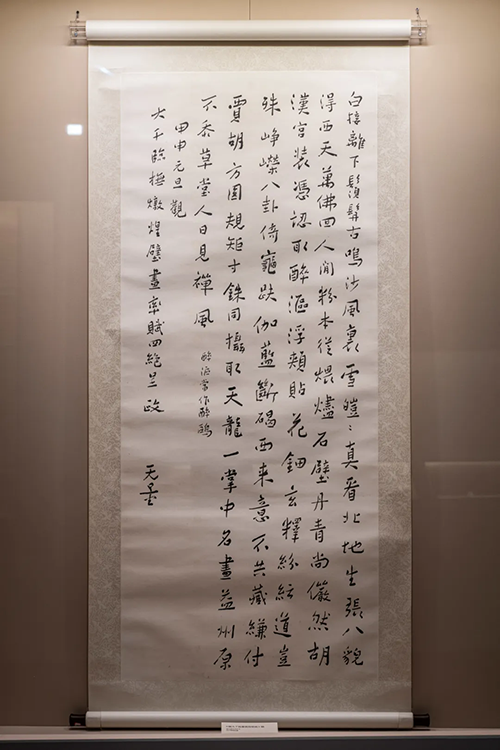 白接離下鬚髯古鳴沙風裏雪皚〻真看北地生張八貌
得西天萬佛回人間粉本從煨燼石壁丹青尚儼然胡
漢宮裝憑認取醉漚浮頰貼花鈿玄釋紛紜道豈
殊崢嶸八卦倚龜趺伽藍斷碣西来意不共藏縑付
賈胡方圓規矩寸銖同攝取天龍一掌中名畫益州原
不忝草堂人日見禪風 醉漚當作醉鷗
甲申元旦觀
大千臨撫燉煌壁畫率賦四絕呈政 无量